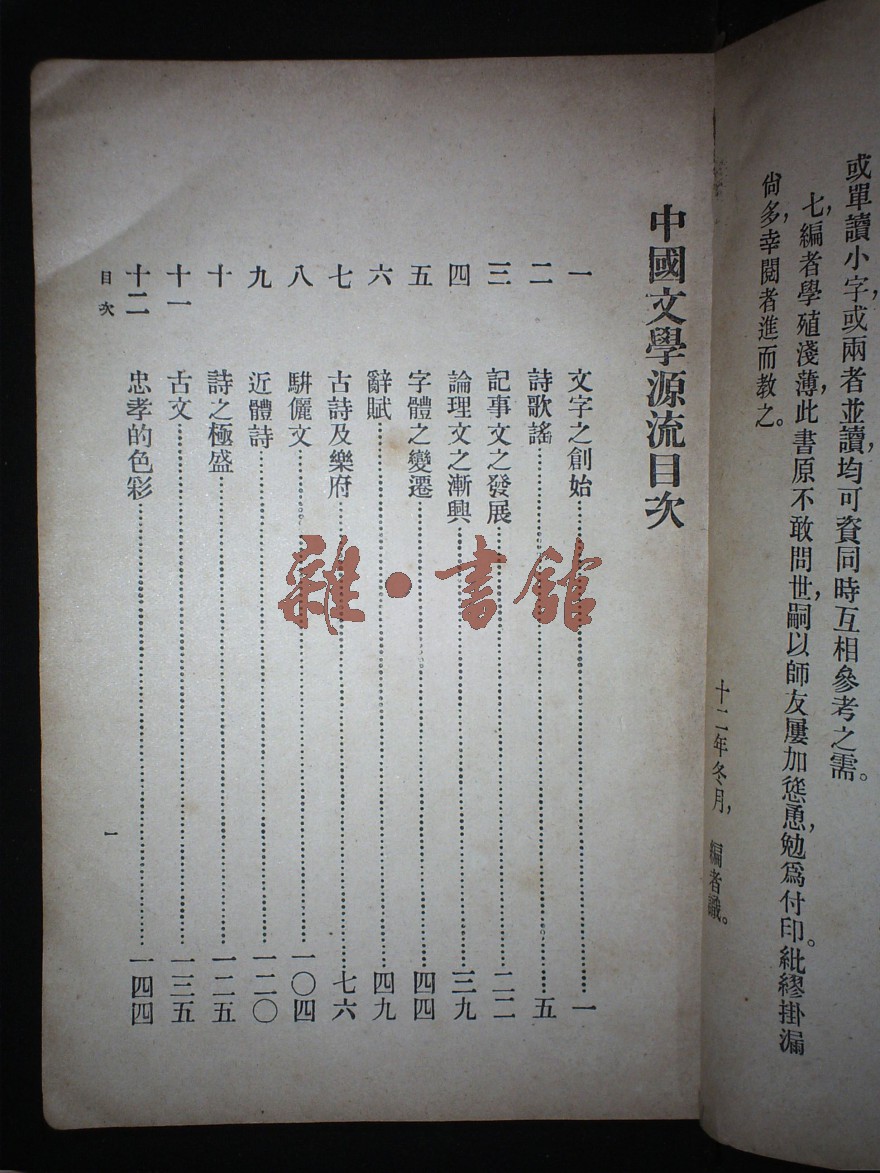 或單讀小字，或兩者並讀，均可資同時互相參考之需。
七，編者學殖淺薄，此書原不敢問世，嗣以師友屢加慫恿，勉爲付印。紕繆掛漏
尙多，幸閱者進而教之。
十二年冬月，編者識。
中國文學源流目次
一 文字之創始……一
二 詩歌謠……五
三 記事文之發展……二二
四 論理文之漸興……三九
五 字體之變遷……四四
六 辭賦……四九
七 古詩及樂府……七六
八 駢儷文……一〇四
九 近體詩……一二〇
十 詩之極盛……一二五
十一 古文……一三五
十二 忠孝的色彩……一四四
目次
一
雜·書館